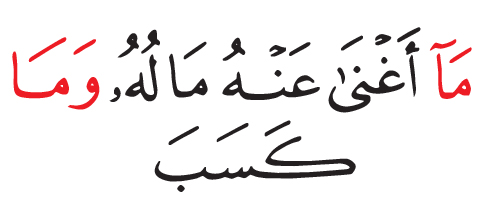 مَآ أَغْنَىٰ عَنْهُ مَالُهُۥ وَمَا
كَسَبَ